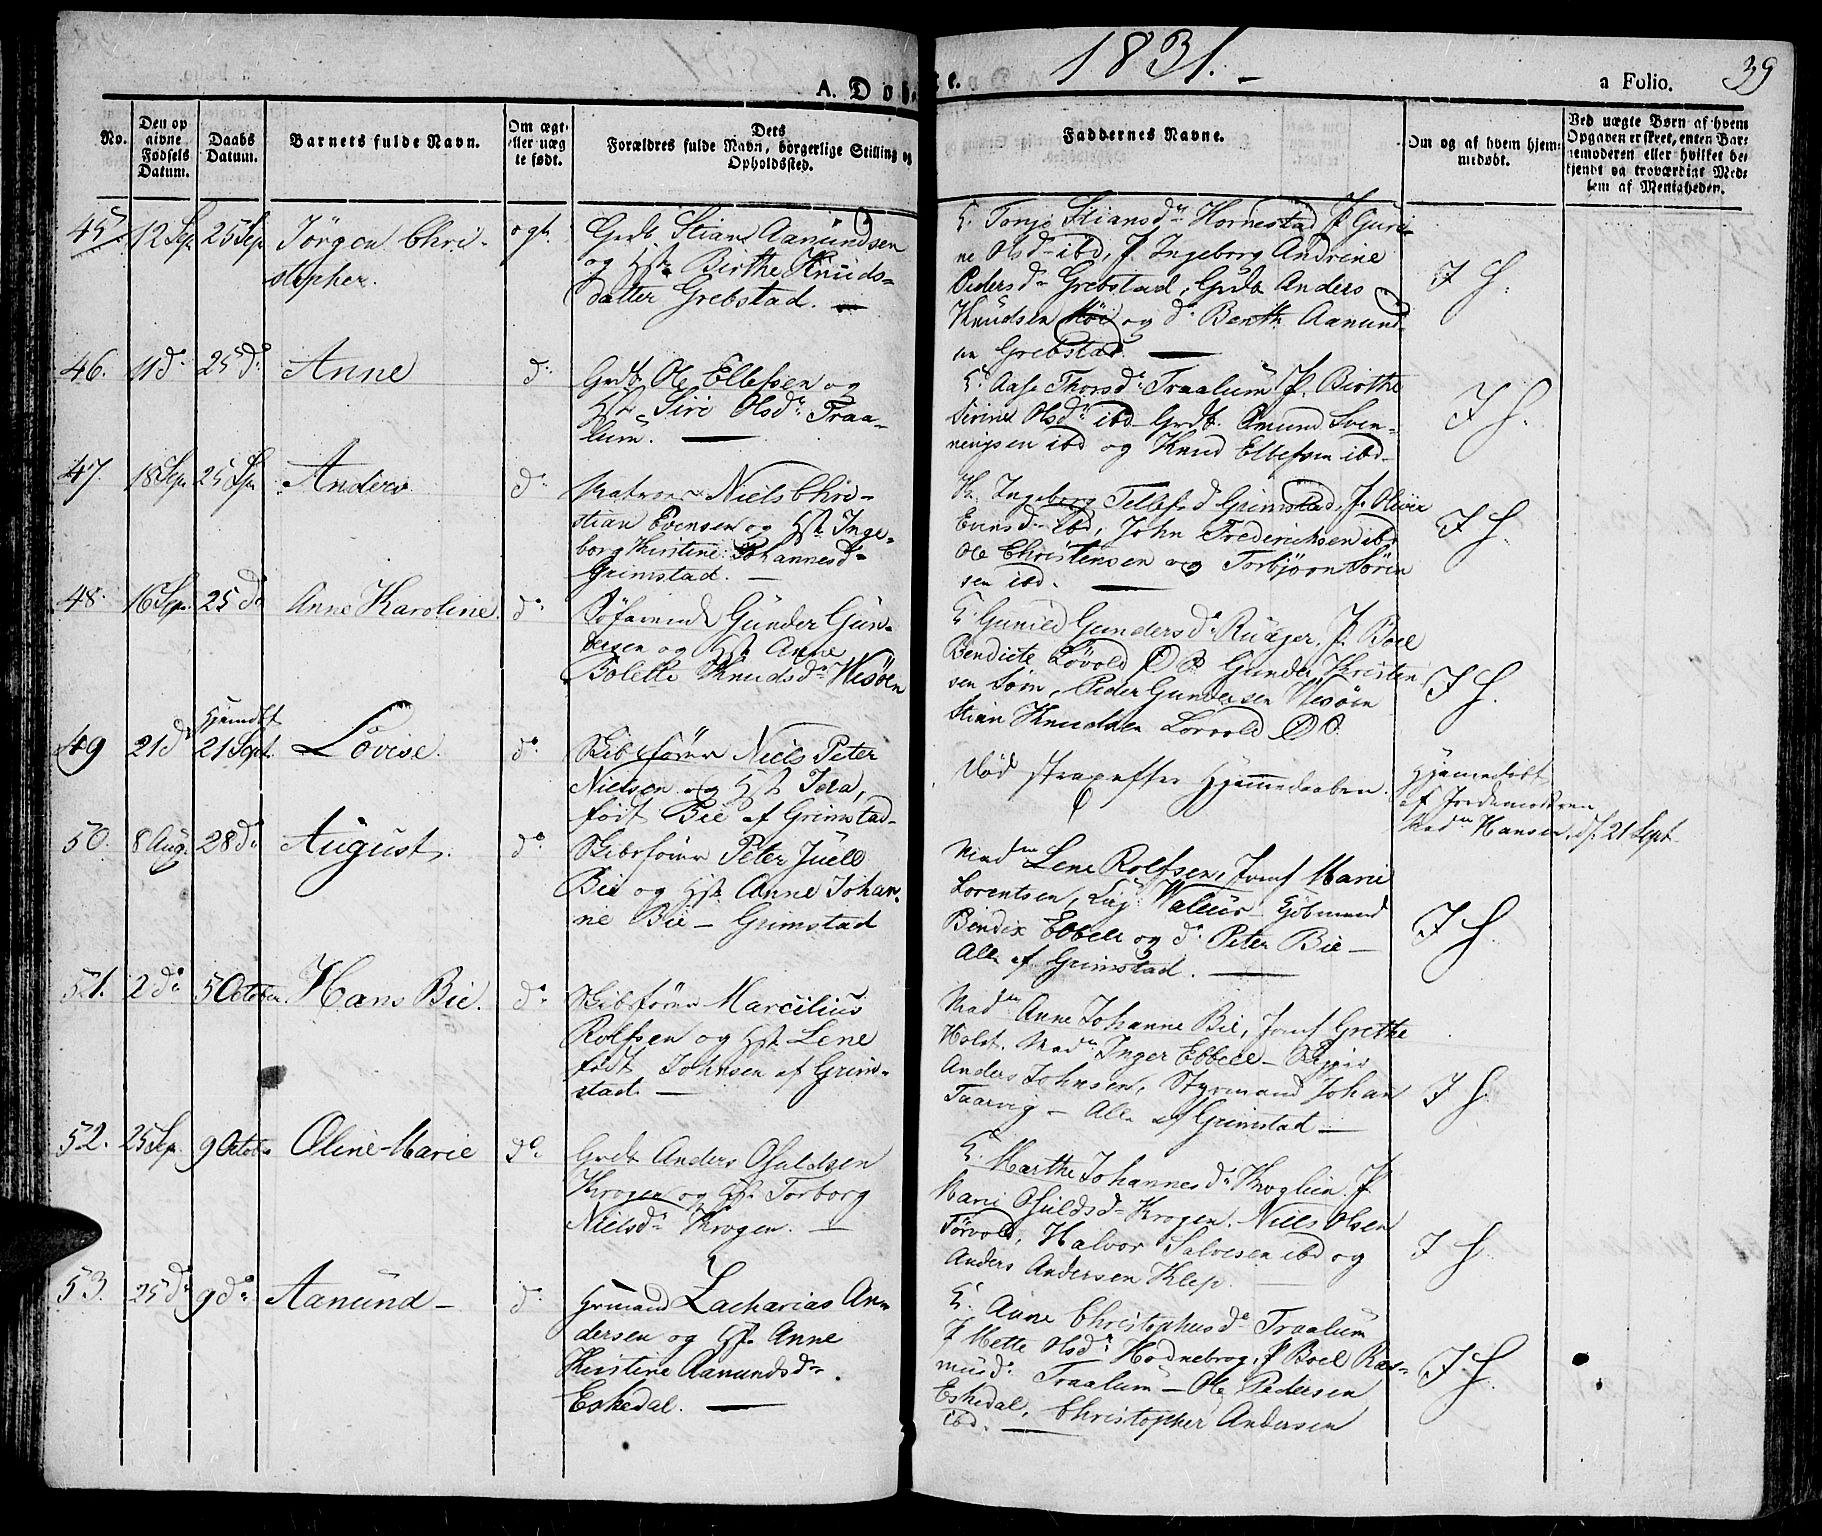 1831.
39
A. Døb
e.
a Folio.
No.
Den op
givne
Fødsels
Datum.
Daabs
Datum.
Barnets fulde Navn.
Om ægt-
eller uæg
te født.
Dets
Forældres fulde Navn, borgerlige Stilling og
Opholdssted.
Faddernes Navne.
Om og af hvem hjem-
medøbt.
Ved uægte Børn af hvem
Opgaven er skeet, enten Bar-
nemoderen eller hvilket be
kjendt og troværdigt Med-
lem af Menigheden.
45. 12 Sep. 25 Sep. Jörgen Chri-
stopher.
ogt.
Grdb. Stian Aamundsen
og Hst. Birthe Knuds-
datter Grebstad. —
K. Tonje Stiansdr. Hornestad P. Guri-
ne Olsd. ibd, P. Ingeborg Andrine
Pedersd. Grebstad, Grdb. Anders
Knudsen og do. Benth. Aamund
sen Grebstad. —
J H.
46. 11 do. 25 do. Anne
do.
Grdb. Ole Ellefsen og
Hst. Siri Olsdr. Traa-
lum. —
K. Aase Thorsdr. Traalum, P. Birthe
Sirine Olsdr. ibd. Grdb. Omund Sven-
ningsen ibd og Knud Ellefsen ibd.
J H.
47. 18 Sep. 25 Sep. Anders
do.
Matros Niels Chri-
stian Evensen og Hst. Inge-
borg Kirstine Johannesd.
Grimstad. —
K. Ingeborg Tellefsd. Grimstad, P. Olivia
Evensd. ibd, John Frederiksen ibd
Ole Christensen og Torbjörn Sören
sen ibd. —
J H.
48. 16 Sep. 25 do. Anne Karoline.
do.
Söfarende Gunder Gun-
dersen og Hst. Anne
Bolette Knudsd. Wesöen
K. Gunild Gundersd. P. Boel
Bendicte Lövold Gunder Kristen
sen Peder Gundersen Wesöen
Stian Knudsen Lovold
J H.
49 21 do.
Hjemdbt
21 Sept. Lovise.
do.
Skibsförer Niels Peter
Nielsen og Hst. Jera,
födt Bie af Grimstad.
Död strax efter Hjemmedaaben.
Hjemmedöbt
af Jordemoderen
Madm. Hansen, d. 21 Sept.
50. 8 Aug. 28 do. August.
do.
Skibsförer Peter Juell
Bie og Hst. Anne Johan-
ne Bie — Grimstad
Madm. Lene Rolfsen, Jomf. Marie
Lorentsen, Kjöbmand
Bendix Ebbell og do. Peter Bie —
Alle af Grimstad. —
J H.
51. 2 do. 5 October. Hans Bie.
do.
Skibsförer Marcilius
Rolfsen og Hst. Lene
födt Johnsen af Grim-
stad. —
Madm. Anne Johanne Bie, Jomf. Grethe
Holst. Madm. Inger Ebbell — Skipper
Anders Johnsen, Styrmand Johan
Taarvig — Alle af Grimstad —
J H.
52. 25 Sep. 9 Octob. Oline-Marie
do.
Grdb. Anders Osuldsen
Krogen og Hst. Torborg
Nielsd. Krogen. —
K. Marthe Johannesdr. P.
Marie Osuldsd. Krogen. Niels Olsen
Törvold, Halvor Salvesen ibd og
Anders Andersen Klep. —
J H.
53. 25 do. 9 do. Aamund —
do.
Grmand Zacharias An-
dersen og Hst. Anne
Kirstine Aamundsdr.
Eskedal. —
K. Anne Christophersd. Traalum
P. Mette Olsdr. Hodnebrog, P. Boel Ras-
musd. Traalum — Ole Pedersen
Eskedal, Christopher Andersen
ibd. —
J. H.